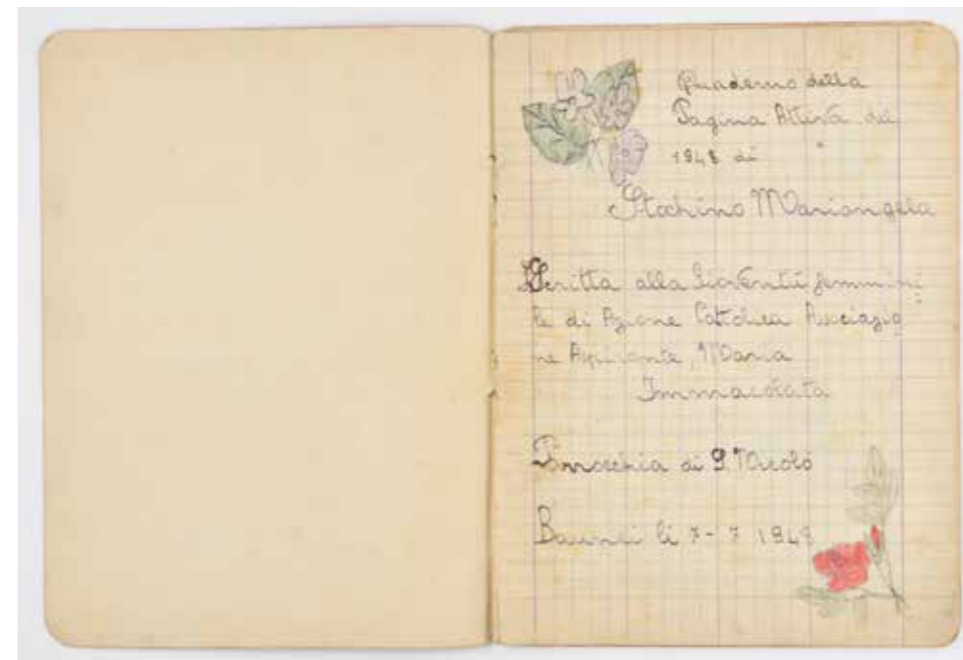 Quaderno della
Pagina Attiva del
1948 di
Stochino Mariangela
Iscritta alla Gioventù femmini
le di Azione Cattolica Associazio
ne Aspirante, Maria
Immacolata
Parrocchia di S. Nicolò
Baunei li 7-7 1948